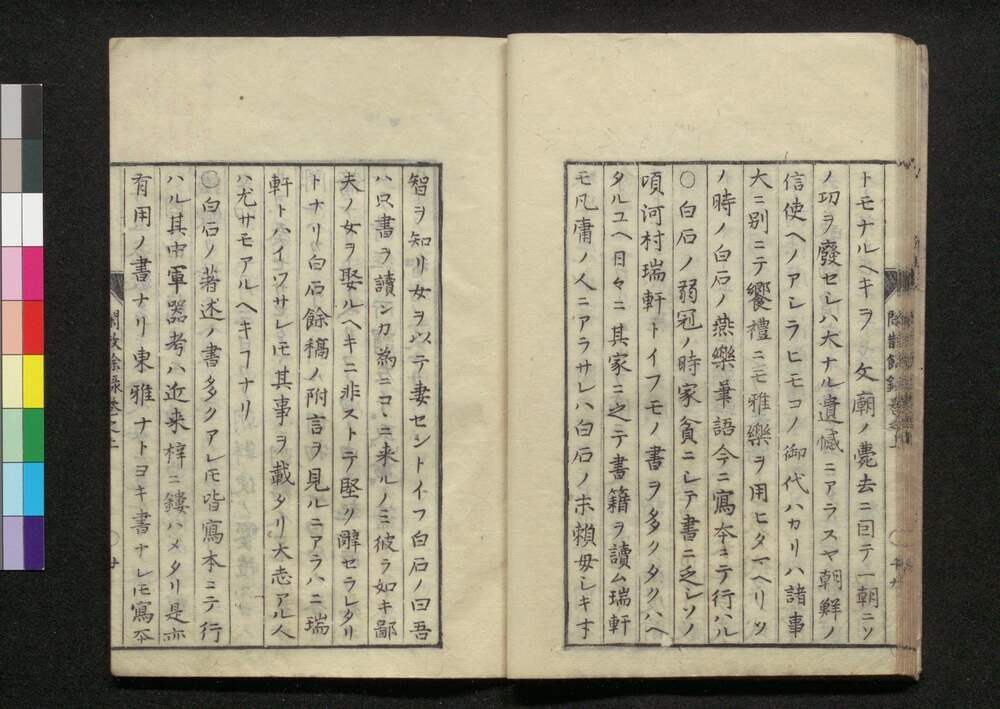 トモナルヘキヲ　文廟ノ薨去ニ囙テ一朝ニソ
ノ功ヲ廢セシハ大ナル遺憾ニアラスヤ朝鮮ノ
信使ヘノアシラヒモコノ御代ハカリハ諸事
大ニ別ニテ饗禮ニモ雅樂ヲ用ヒタマヘリソ
ノ時ノ白石ノ燕樂筆語今ニ寫本ニテ行ハル
〇白石ノ弱冠ノ時家貧ニシテ書ニ乏シソノ
頃河村瑞軒トイフモノ書ヲ多クタクハヘ
タルユヘ日々ニ其家ニ之テ書籍ヲ讀ム瑞軒
モ凡庸ノ人ニアラサレハ白石ノ末賴母シキヿ
智ヲ知リ女ヲ以テ妻セントイフ白石ノ曰吾
ハ只書ヲ讀ンカ為ニコヽニ来ルノミ彼ラ如キ鄙
夫ノ女ヲ娶ルヘキニ非ストテ堅ク辭セラレタリ
トナリ白石餘稿ノ附言ヲ見ルニアラハニ瑞
軒トハイワサレ𪜈其事ヲ載タリ大志アル人
ハ尤サモアルヘキヿナリ
〇白石ノ著述ノ書多クアレ𪜈皆寫本ニテ行
ハル其中軍器考ハ近来梓ニ鏤ハメタリ是亦
有用ノ書ナリ東雅ナトヨキ書ナレ𪜈寫本
閑散餘録巻之上
廿